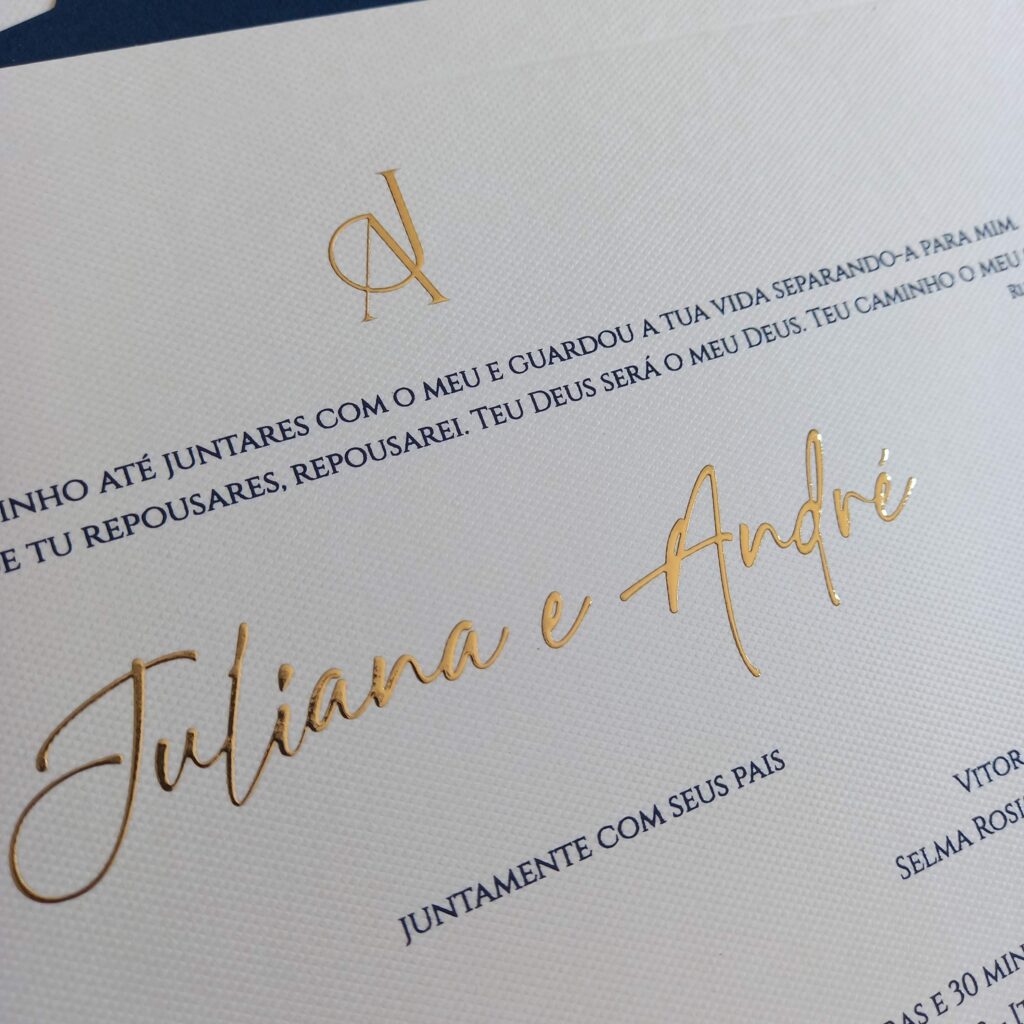 JA
INHO ATÉ JUNTARES COM O MEU E GUARDOU A TUA VIDA SEPARANDO-A PARA MIM.
E TU REPOUSARES, REPOUSAREI. TEU DEUS SERÁ O MEU DEUS. TEU CAMINHO O MEU
Juliana e André
JUNTAMENTE COM SEUS PAIS
VITOR
SELMA ROSI
RAS E 30 MIN